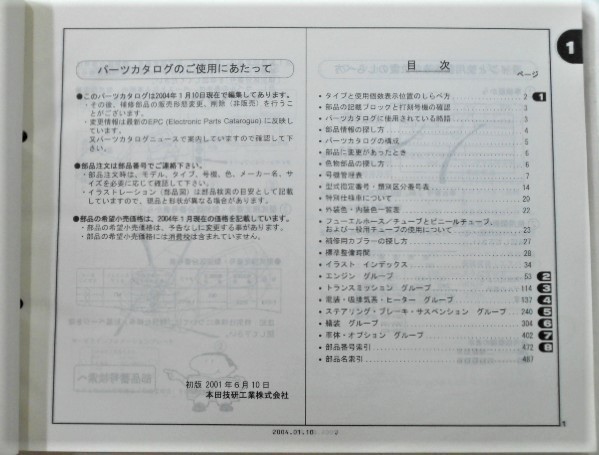 パーツカタログのご使用にあたって
●このパーツカタログは2004年1月10日現在で編集してあります。
・その後、補修部品の販売形態変更、削除（非販売）を行う
ことがございます。
・変更情報は最新のEPC (Electronic Parts Catarogue) に反映し
ています。
又パーツカタログニュースで案内していますので確認して下
さい。
●部品注文は部品番号でご連絡下さい。
・部品注文時は、モデル、タイプ、号機、色、メーカー名、サ
イズを必要に応じて確認して下さい。
・イラストレーション（部品図）は部品検索の目安として記載
しますので、現品と形状が異なる場合があります。
●部品の希望小売価格は、2004年1月現在の価格を記載しています。
・部品の希望小売価格は、予告なしに変更する事があります。
・部品の希望小売価格には消費税は含まれていません。
初版 2001年6月10日
本田技研工業株式会社
目 次
ページ
・タイプと使用個数表示位置のしらべ方 2 1
・部品の記載ブロックと打刻号機の確認 3
・パーツカタログに使用されている略語 3
・部品情報の探し方 4
・パーツカタログの構成 5
・部品に変更があったとき 6
・色物部品の探し方 6
・号機管理表 7
・型式指定番号・類別区分番号表 14
・特別仕様車について 20
・外装色・内装色一覧表 22
・フューエルホース／チューブとビニールチューブ、
および一般用チューブの使用について 23
・補修用カプラーの探し方 27
・標準整備時間 28
・イラスト インデックス 34
・エンジン グループ 53 2
・トランスミッション グループ 114 3
・電装・吸排気系・ヒーター グループ 137 4
・ステアリング・ブレーキ・サスペンション グループ 240 5
・艤装 グループ 304 6
・車体・オプション グループ 402 7
・部品番号索引 472 8
・部品名索引 487
1
2004.01.10
1